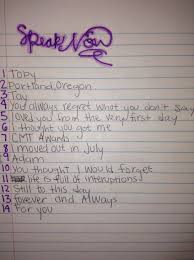 Speak Now
1 Toby
2 Portland, Oregon
3 Tay
4 You always regret what you don't say
5 loved you from the very first day
6 I thought you got me
7 CMT Awards
8 I moved out in July
9 Adam
10 You thought I would forget
11 life is full of interuptions
12 Still to this day
13 forever and Always
14 For you